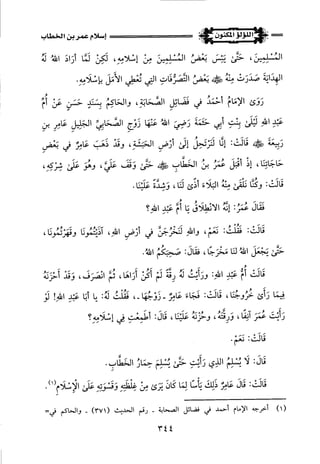 إسلام عمر بن الخطاب
اللؤلؤ المكنون
المُسْلِمِينَ، حَتَّى يَئِسَ بَعْضُ المُسْلِمِينَ مِنْ إِسْلامِهِ، لَكِنْ لَمَّا أَرَادَ اللهُ لَهُ
الهِدَايَةَ صَدَرَتْ مِنْهُ ﷺ بَعْضُ التَّصَرُّفَاتِ التِي تُعْطِي الأَمَلَ بِإِسْلامِهِ.
رَوَى الإِمَامُ أَحْمَدُ فِي فَضَائِلِ الصَّحَابَةِ، وَالحَاكِمُ بِسَنَدٍ حَسَنٍ عَنْ أُمِّ
عَبْدِ اللهِ لَيْلَى بِنْتِ أَبِي حَثْمَةَ رَضِيَ اللهُ عَنْهَا زَوْجِ الصَّحَابِيِّ الجَلِيلِ عَامِرِ بنِ
رَبِيعَةَ ﷺ قَالَتْ: إِنَّا لَنَرْتَحِلُ إِلَى أَرْضِ الحَبَشَةِ، وَقَدْ ذَهَبَ عَامِرٌ فِي بَعْضِ
حَاجَاتِنَا، إِذْ أَقْبَلَ عُمَرُ بنُ الخَطَّابِ ﷺ حَتَّى وَقَفَ عَلَيَّ، وَهُوَ عَلَى شِرْكِهِ،
قَالَتْ: وَكُنَّا نَلْقَى مِنْهُ البَلَاءَ، أَذًى لَنَا، وَشِدَّةً عَلَيْنَا.
فَقَالَ عُمَرُ: إِنَّهُ الانْطِلَاقُ يَا أُمَّ عَبْدِ اللهِ؟
قَالَتْ: فَقُلْتُ: نَعَمْ، وَاللهِ لَنَخْرُجَنَّ فِي أَرْضِ اللهِ، آذَيْتُمُونَا وَقَهَرْتُمُونَا،
حَتَّى يَجْعَلَ اللهُ لَنَا مَخْرَجًا، فَقَالَ: صَحِبَكُمُ اللهُ.
قَالَتْ أُمُّ عَبْدِ اللهِ: وَرَأَيْتُ لَهُ رِقَّةً لَمْ أَكُنْ أَرَاهَا، ثُمَّ انْصَرَفَ، وَقَدْ أَحْزَنَهُ
فِيمَا رَأَى خُرُوجُنَا، قَالَتْ: فَجَاءَ عَامِرٌ -زَوْجُهَا-، فَقُلْتُ لَهُ: يَا أَبَا عَبْدِ اللهِ! لَوْ
رَأَيْتَ عُمَرَ آنِفًا، وَرِقَّتَهُ، وَحُزْنَهُ عَلَيْنَا، قَالَ: أَطَمِعْتِ فِي إِسْلَامِهِ؟
قَالَتْ: نَعَمْ.
قَالَ: لَا يُسْلِمُ الذِي رَأَيْتِ حَتَّى يُسْلِمَ حِمَارُ الخَطَّابِ.
قَالَتْ: قَالَ عَامِرٌ ذَلِكَ يَأْسًا لِمَا كَانَ يَرَى مِنْ غِلْظَتِهِ وَقَسْوَتِهِ عَلَى الإِسْلَامِ(١).
(١) أخرجه الإمام أحمد في فضائل الصحابة - رقم الحديث (٣٧١) - والحاكم في=
٣٤٤